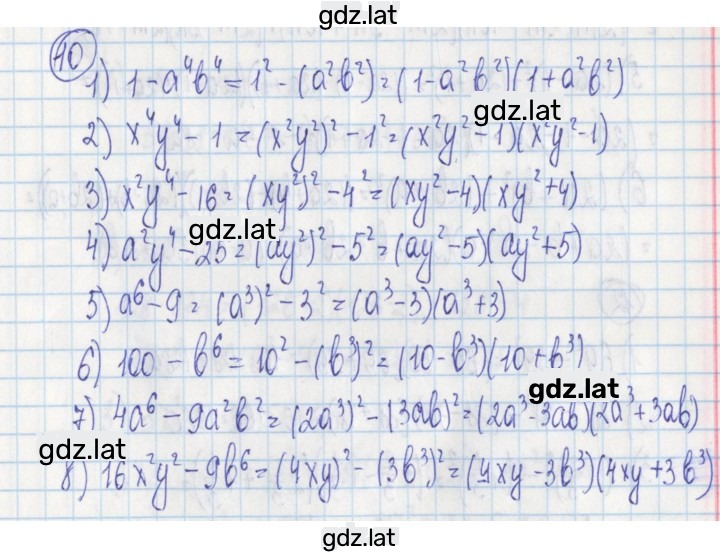 gdz.lat
10
1) 1-a⁴b⁴=1²-(a²b²)=(1-a²b²)(1+a²b²)
gdz.lat
2) x⁴y⁴-1=(x²y²)²-1²=(x²y²-1)(x²y²-1)
3) x²y⁴-16=(xy²)²-4²=(xy²-4)(xy²+4)
gdz.lat
4) a²y⁴-25=(ay²)²-5²=(ay²-5)(ay²+5)
5) a⁶-9=(a³)²-3²=(a³-3)(a³+3)
6) 100-b⁶=10²-(b³)²=(10-b³)(10+b³)
gdz.lat
7) 4a⁶-9a²b²=(2a³)²-(3ab)²=(2a³-3ab)(2a³+3ab)
gdz.lat
8) 16x²y²-9b⁶=(4xy)²-(3b³)²=(4xy-3b³)(4xy+3b³)
gdz.lat